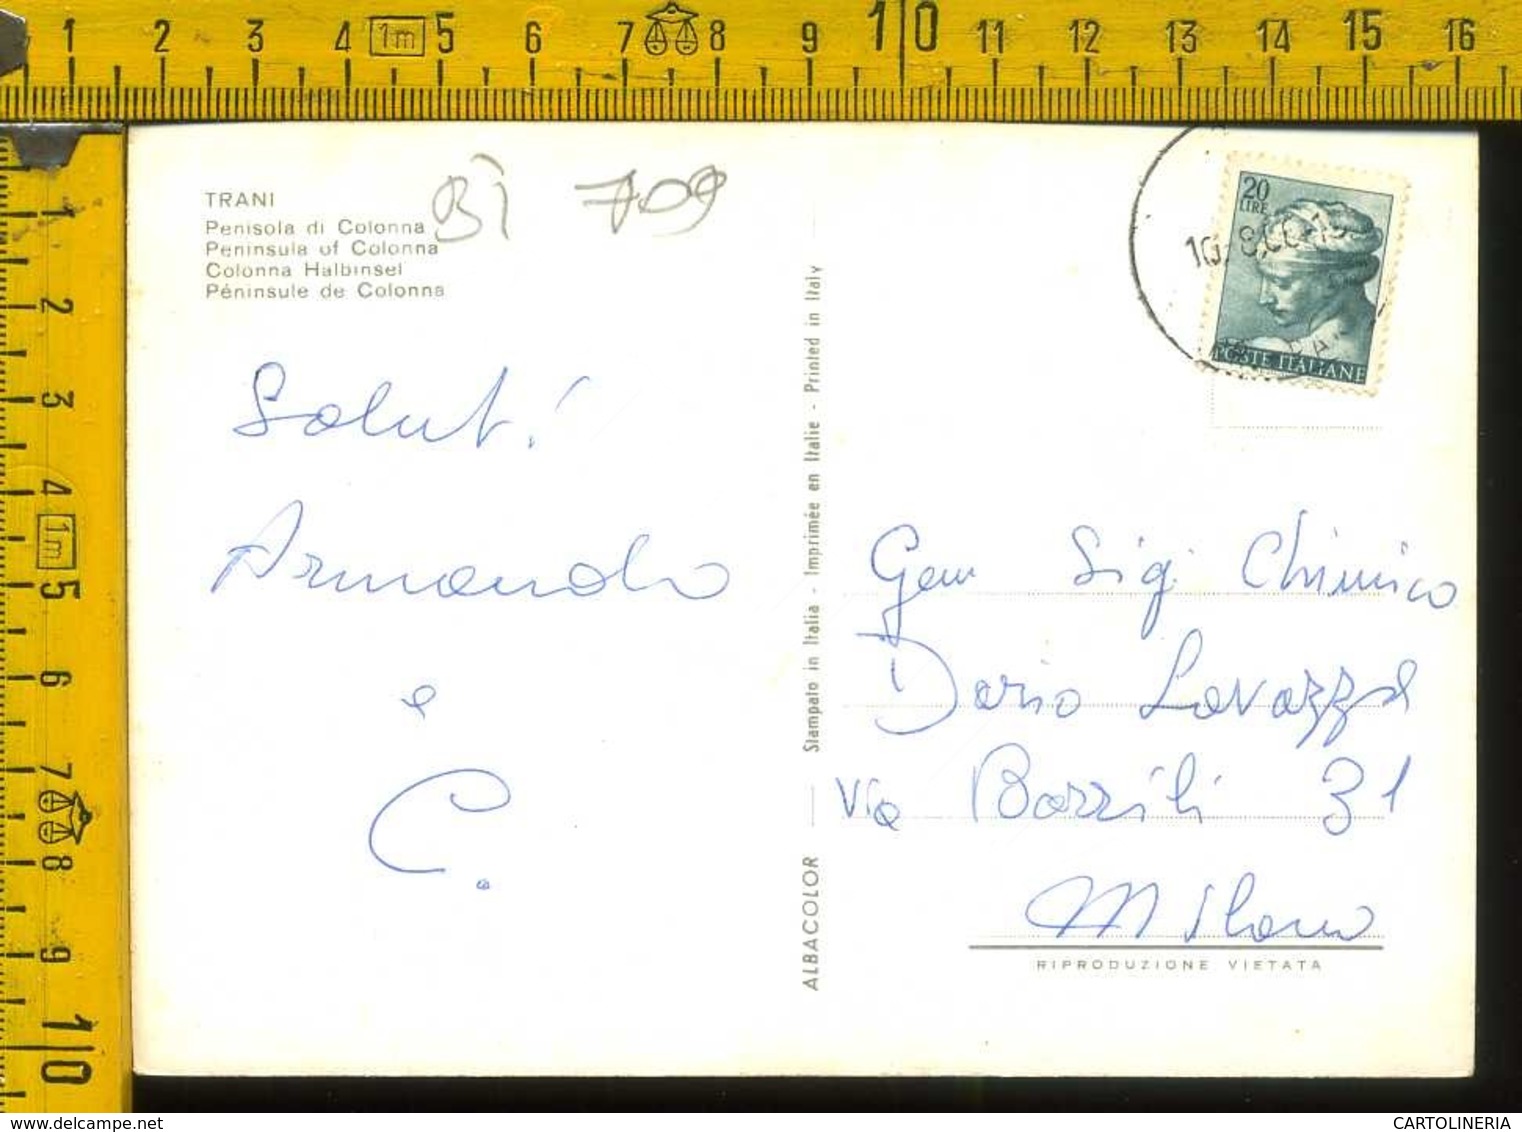 1 2 3 4 1m 5 6 7 8 9 10 11 12 13 14 15 16
1 2 3 4 1m 5 6 7 8 9 10
TRANI
Penisola di Colonna
Peninsula of Colonna
Colonna Halbinsel
Péninsule de Colonna
BI 709
Saluti
Armando
e
C.
ALBACOLOR Stampato in Italia - Imprimée en Italie - Printed in Italy
20
LIRE
POSTE ITALIANE
Sig. Chimico
Dario Lavazza
Via Barrili 31
Milano
RIPRODUZIONE VIETATA
cartolineria@libero.it
CARTOLINERIA